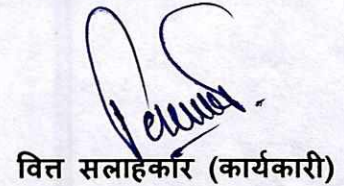 वित्त सलाहकार (कार्यकारी)